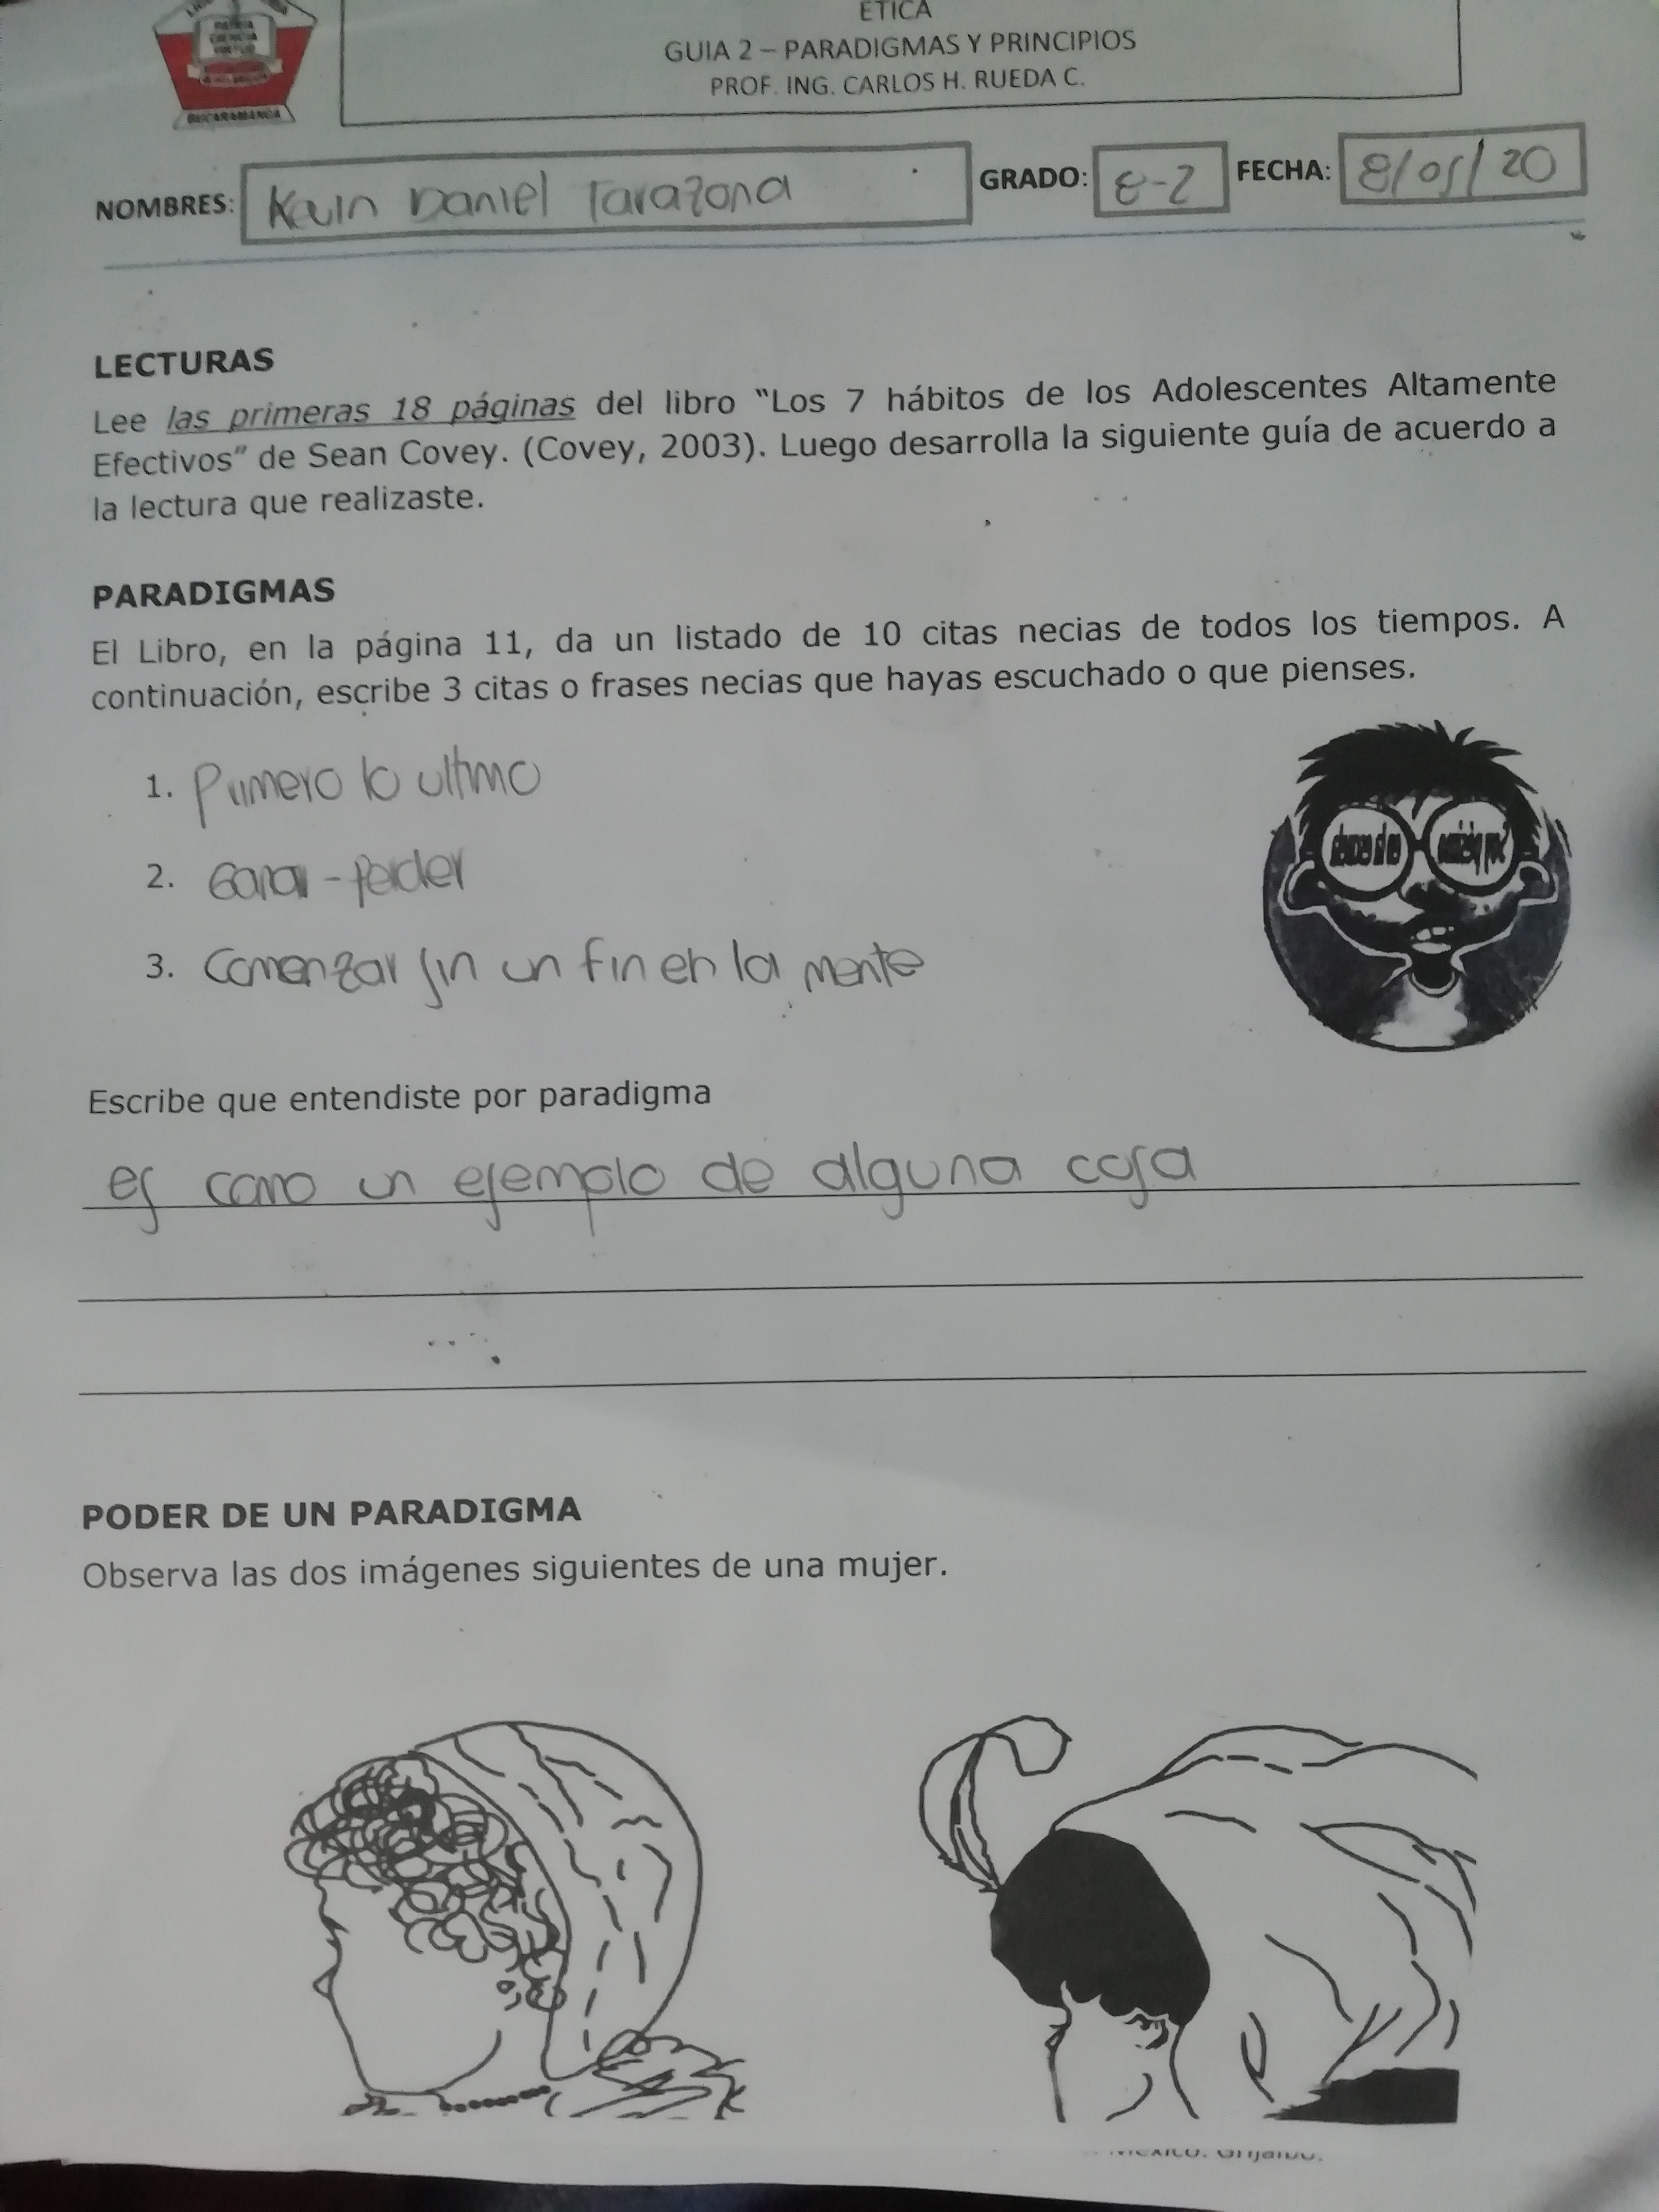 ETICA
GUIA 2 – PARADIGMAS Y PRINCIPIOS
PROF. ING. CARLOS H. RUEDA C.
BUCARAMANGA
NOMBRES: Kevin Daniel Tarazona GRADO: 8-2 FECHA: 8/05/20
LECTURAS
Lee las primeras 18 páginas del libro “Los 7 hábitos de los Adolescentes Altamente
Efectivos” de Sean Covey. (Covey, 2003). Luego desarrolla la siguiente guía de acuerdo a
la lectura que realizaste.
PARADIGMAS
El Libro, en la página 11, da un listado de 10 citas necias de todos los tiempos. A
continuación, escribe 3 citas o frases necias que hayas escuchado o que pienses.
1. Primero lo ultimo
2. Ganar - Perder
3. Comenzar sin un fin en la mente
Escribe que entendiste por paradigma
es como un ejemplo de alguna cosa
PODER DE UN PARADIGMA
Observa las dos imágenes siguientes de una mujer.
México. Grijalbo.